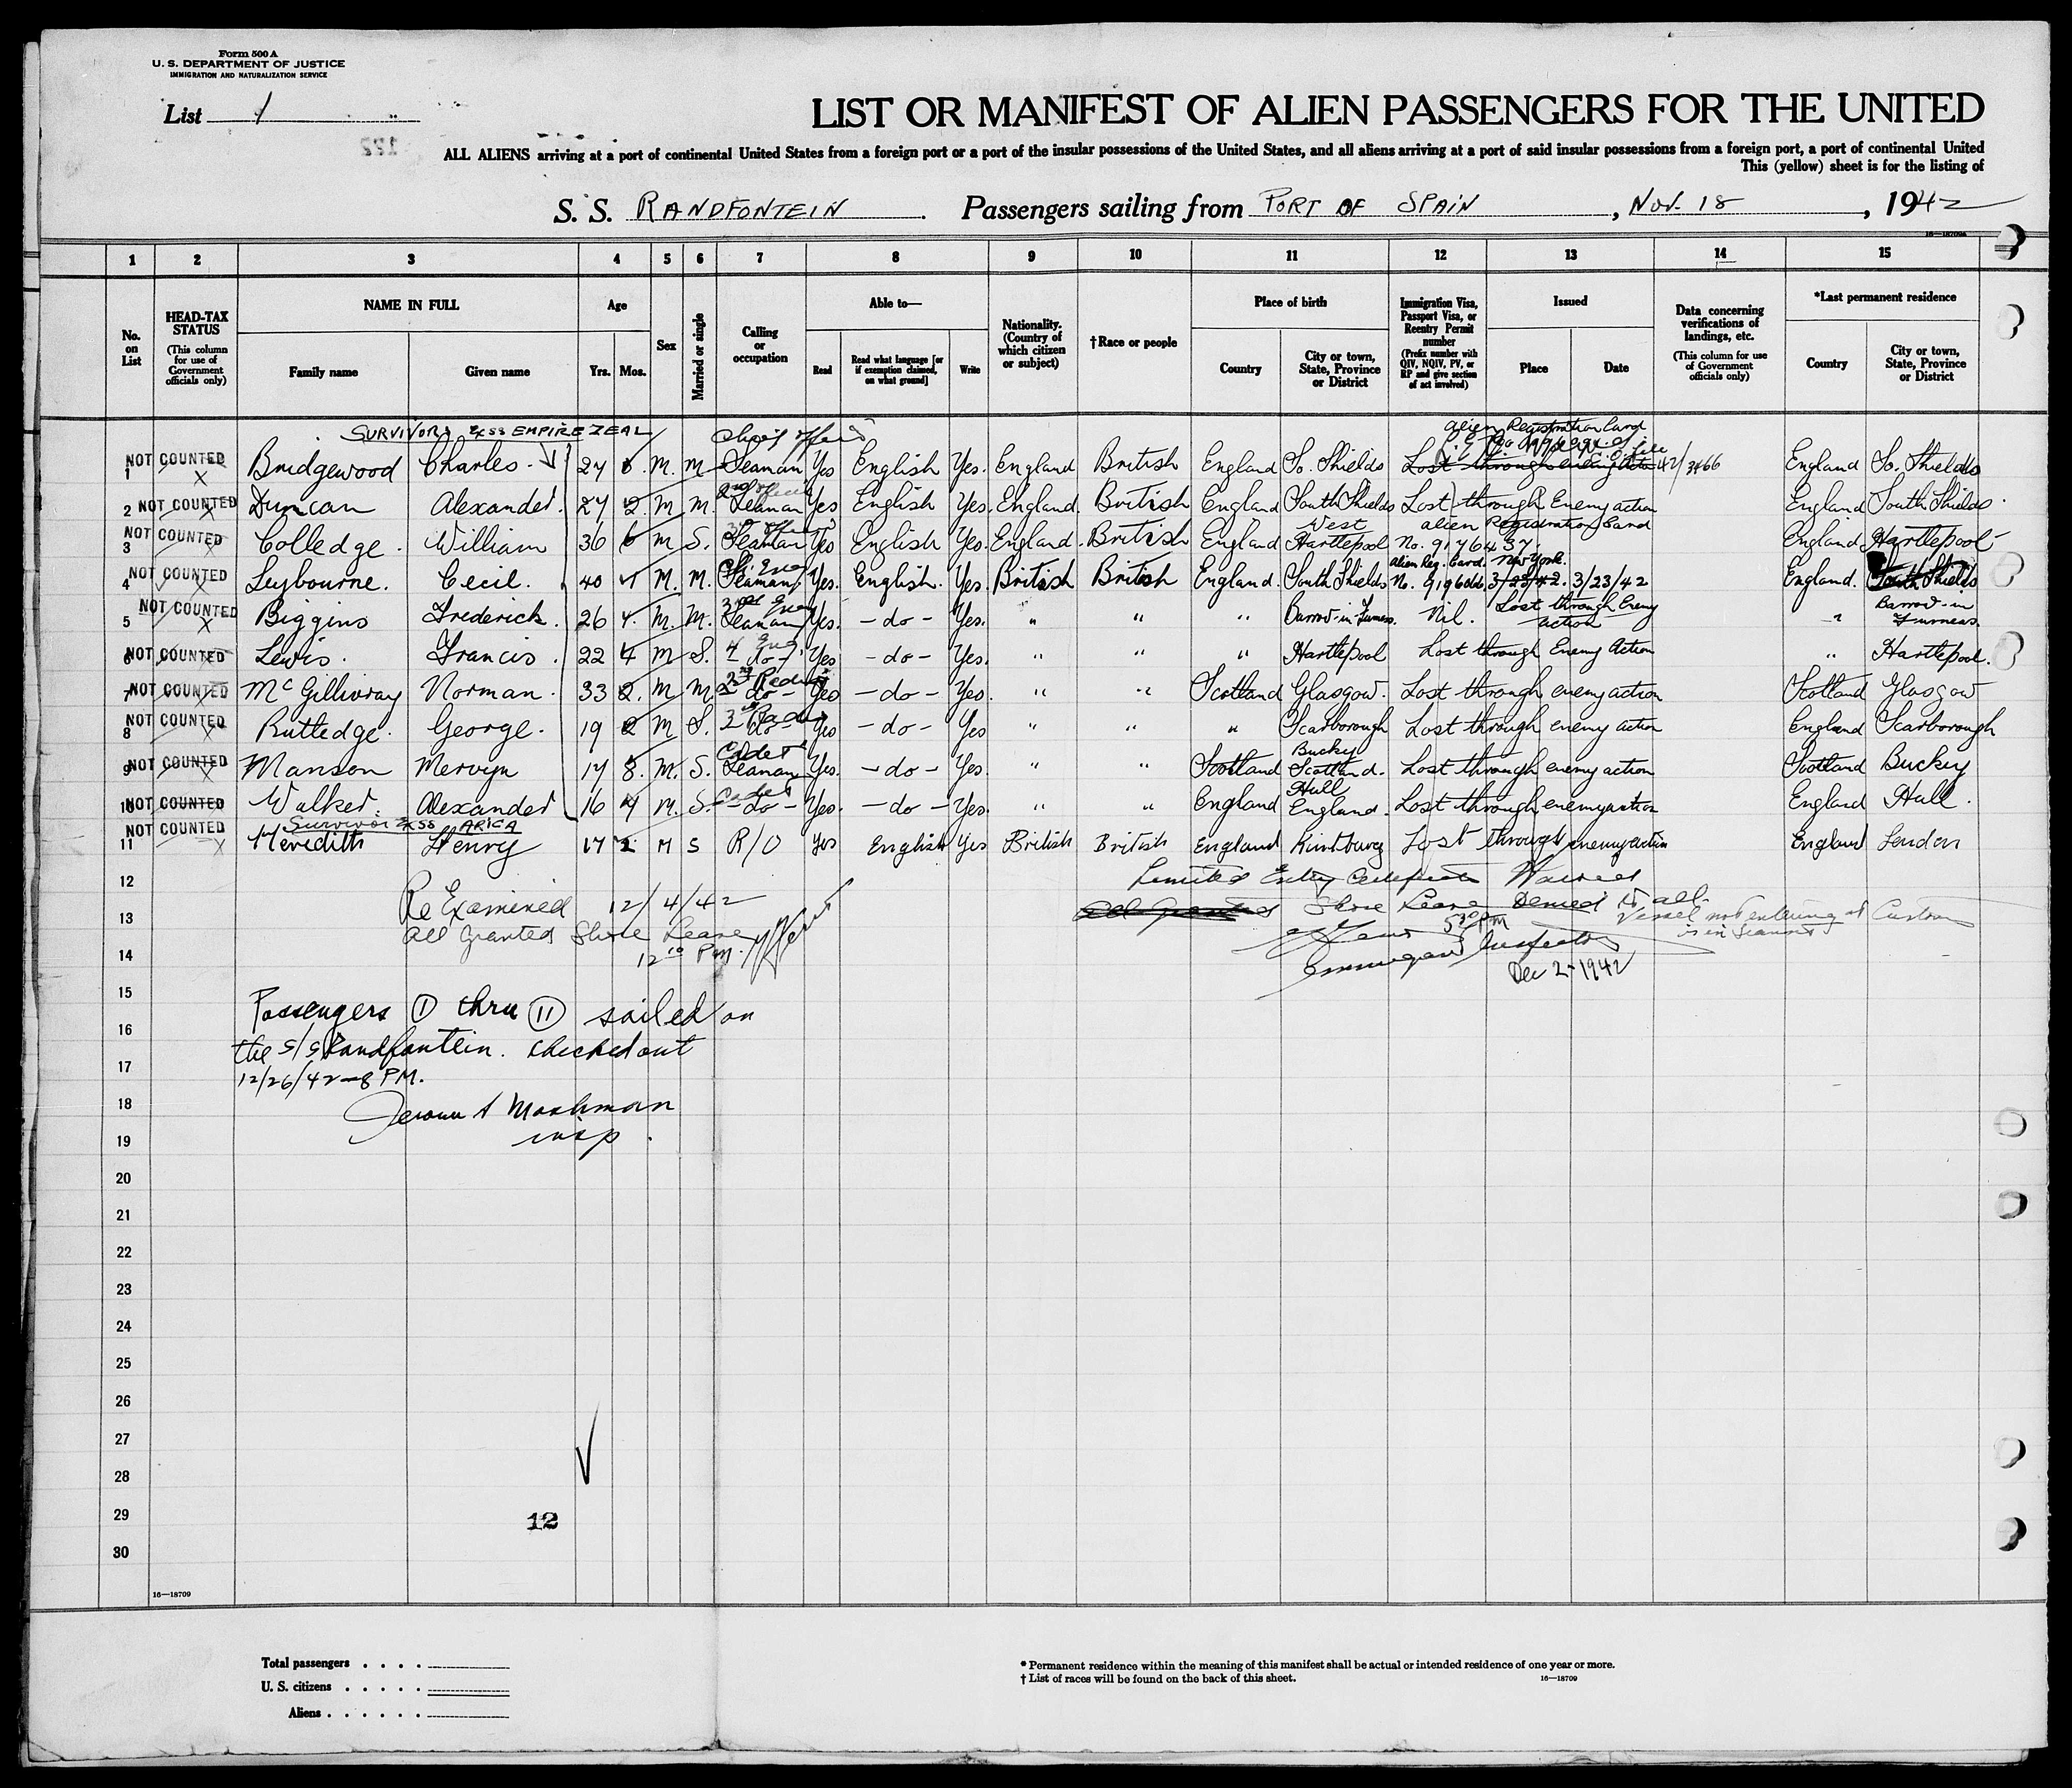 Form 500 A
U. S. DEPARTMENT OF JUSTICE
IMMIGRATION AND NATURALIZATION SERVICE
List 1
LIST OR MANIFEST OF ALIEN PASSENGERS FOR THE UNITED
ALL ALIENS arriving at a port of continental United States from a foreign port or a port of the insular possessions of the United States, and all aliens arriving at a port of said insular possessions from a foreign port, a port of continental United
This (yellow) sheet is for the listing of
S. S. RANDFONTEIN Passengers sailing from PORT OF SPAIN, Nov. 18, 1942
1 2 3 4 5 6 7 8 9 10 11 12 13 14 15
No. on List
HEAD-TAX STATUS (This column for use of Government officials only)
NAME IN FULL
Family name Given name
Age
Yrs. Mos.
Sex
Married or single
Calling or occupation
Able to—
Read Read what language [or if exemption claimed, on what ground] Write
Nationality. (Country of which citizen or subject)
†Race or people
Place of birth
Country City or town, State, Province or District
Immigration Visa, Passport Visa, or Reentry Permit number (Prefix number with QIV, NQIV, PV, or RP and give section of act involved)
Issued
Place Date
Data concerning verifications of landings, etc. (This column for use of Government officials only)
*Last permanent residence
Country City or town, State, Province or District
SURVIVORS EX SS EMPIRE ZEAL Chief officer Alien Registration Card
1 NOT COUNTED Bridgewood Charles. 27 6. M. M Seaman Yes English Yes. England British England So. Shields Lost through enemy action 42/3466 England So. Shields
2 NOT COUNTED Duncan Alexander. 27 2. M M. 2nd officer Seaman Yes English Yes. England. British England South Shields Lost through Enemy action England South Shields
3 NOT COUNTED Colledge. William 36 6 M S. Seaman Yes English Yes. England. British England West Hartlepool Alien Registration Card No. 9176437. England Hartlepool
4 NOT COUNTED Leybourne. Cecil. 40 1 M. M. Ch. Eng Seaman Yes. English. Yes. British British England. South Shields Alien Reg. Card. New York. No. 3/23/42. 3/23/42 England. South Shields
5 NOT COUNTED Biggins Frederick. 26 4. M. M. Seaman Yes. – do – Yes. " " " Barrow-in-Furness. Nil. Lost through Enemy action " Barrow-in Furness.
6 NOT COUNTED Lewis. Francis. 22 4 M S. 4 Eng – do – Yes – do – Yes. " " " Hartlepool Lost through Enemy Action " Hartlepool.
7 NOT COUNTED McGillivray Norman. 33 2. M M – do – Yes – do – Yes. " " Scotland Glasgow. Lost through enemy action Scotland Glasgow
8 NOT COUNTED Rutledge. George. 19 2 M S. – do – Yes – do – Yes " " " Scarborough Lost through enemy action England Scarborough
9 NOT COUNTED Manson Mervyn 17 8. M. S. Cadet Seaman Yes. – do – Yes. " " Scotland Bucky Scotland. Lost through enemy action Scotland Buckey
10 NOT COUNTED Walker. Alexander 16 4 M. S. Cadet – do – Yes. – do – Yes. " " England Hull England. Lost through enemy action England Hull.
Survivor EX SS ARICA
11 NOT COUNTED Meredith Henry 17 2 M S R/O Yes English Yes British British England Kintbury Lost through enemy action England London
12 Limited Entry Certificate Waived
Re Examined 12/4/42
13 All Granted Shore Leave Denied to all.
Vessel not entering at Customs
is in transit
All Granted Shore Leave 5 30 PM
12 10 P.M.
14 Immigrant Inspector
Dec 2 - 1942
15 Passengers 1 thru 11 sailed on
16 the S/S Randfontein. Checked out
17 12/26/42 – 8 PM.
18 Jerome A Mashman
19 insp.
20
21
22
23
24
25
26
27
28
29 12
30
16—18709
Total passengers . . . .
U. S. citizens . . . . .
Aliens . . . . . .
* Permanent residence within the meaning of this manifest shall be actual or intended residence of one year or more.
† List of races will be found on the back of this sheet. 16—18709